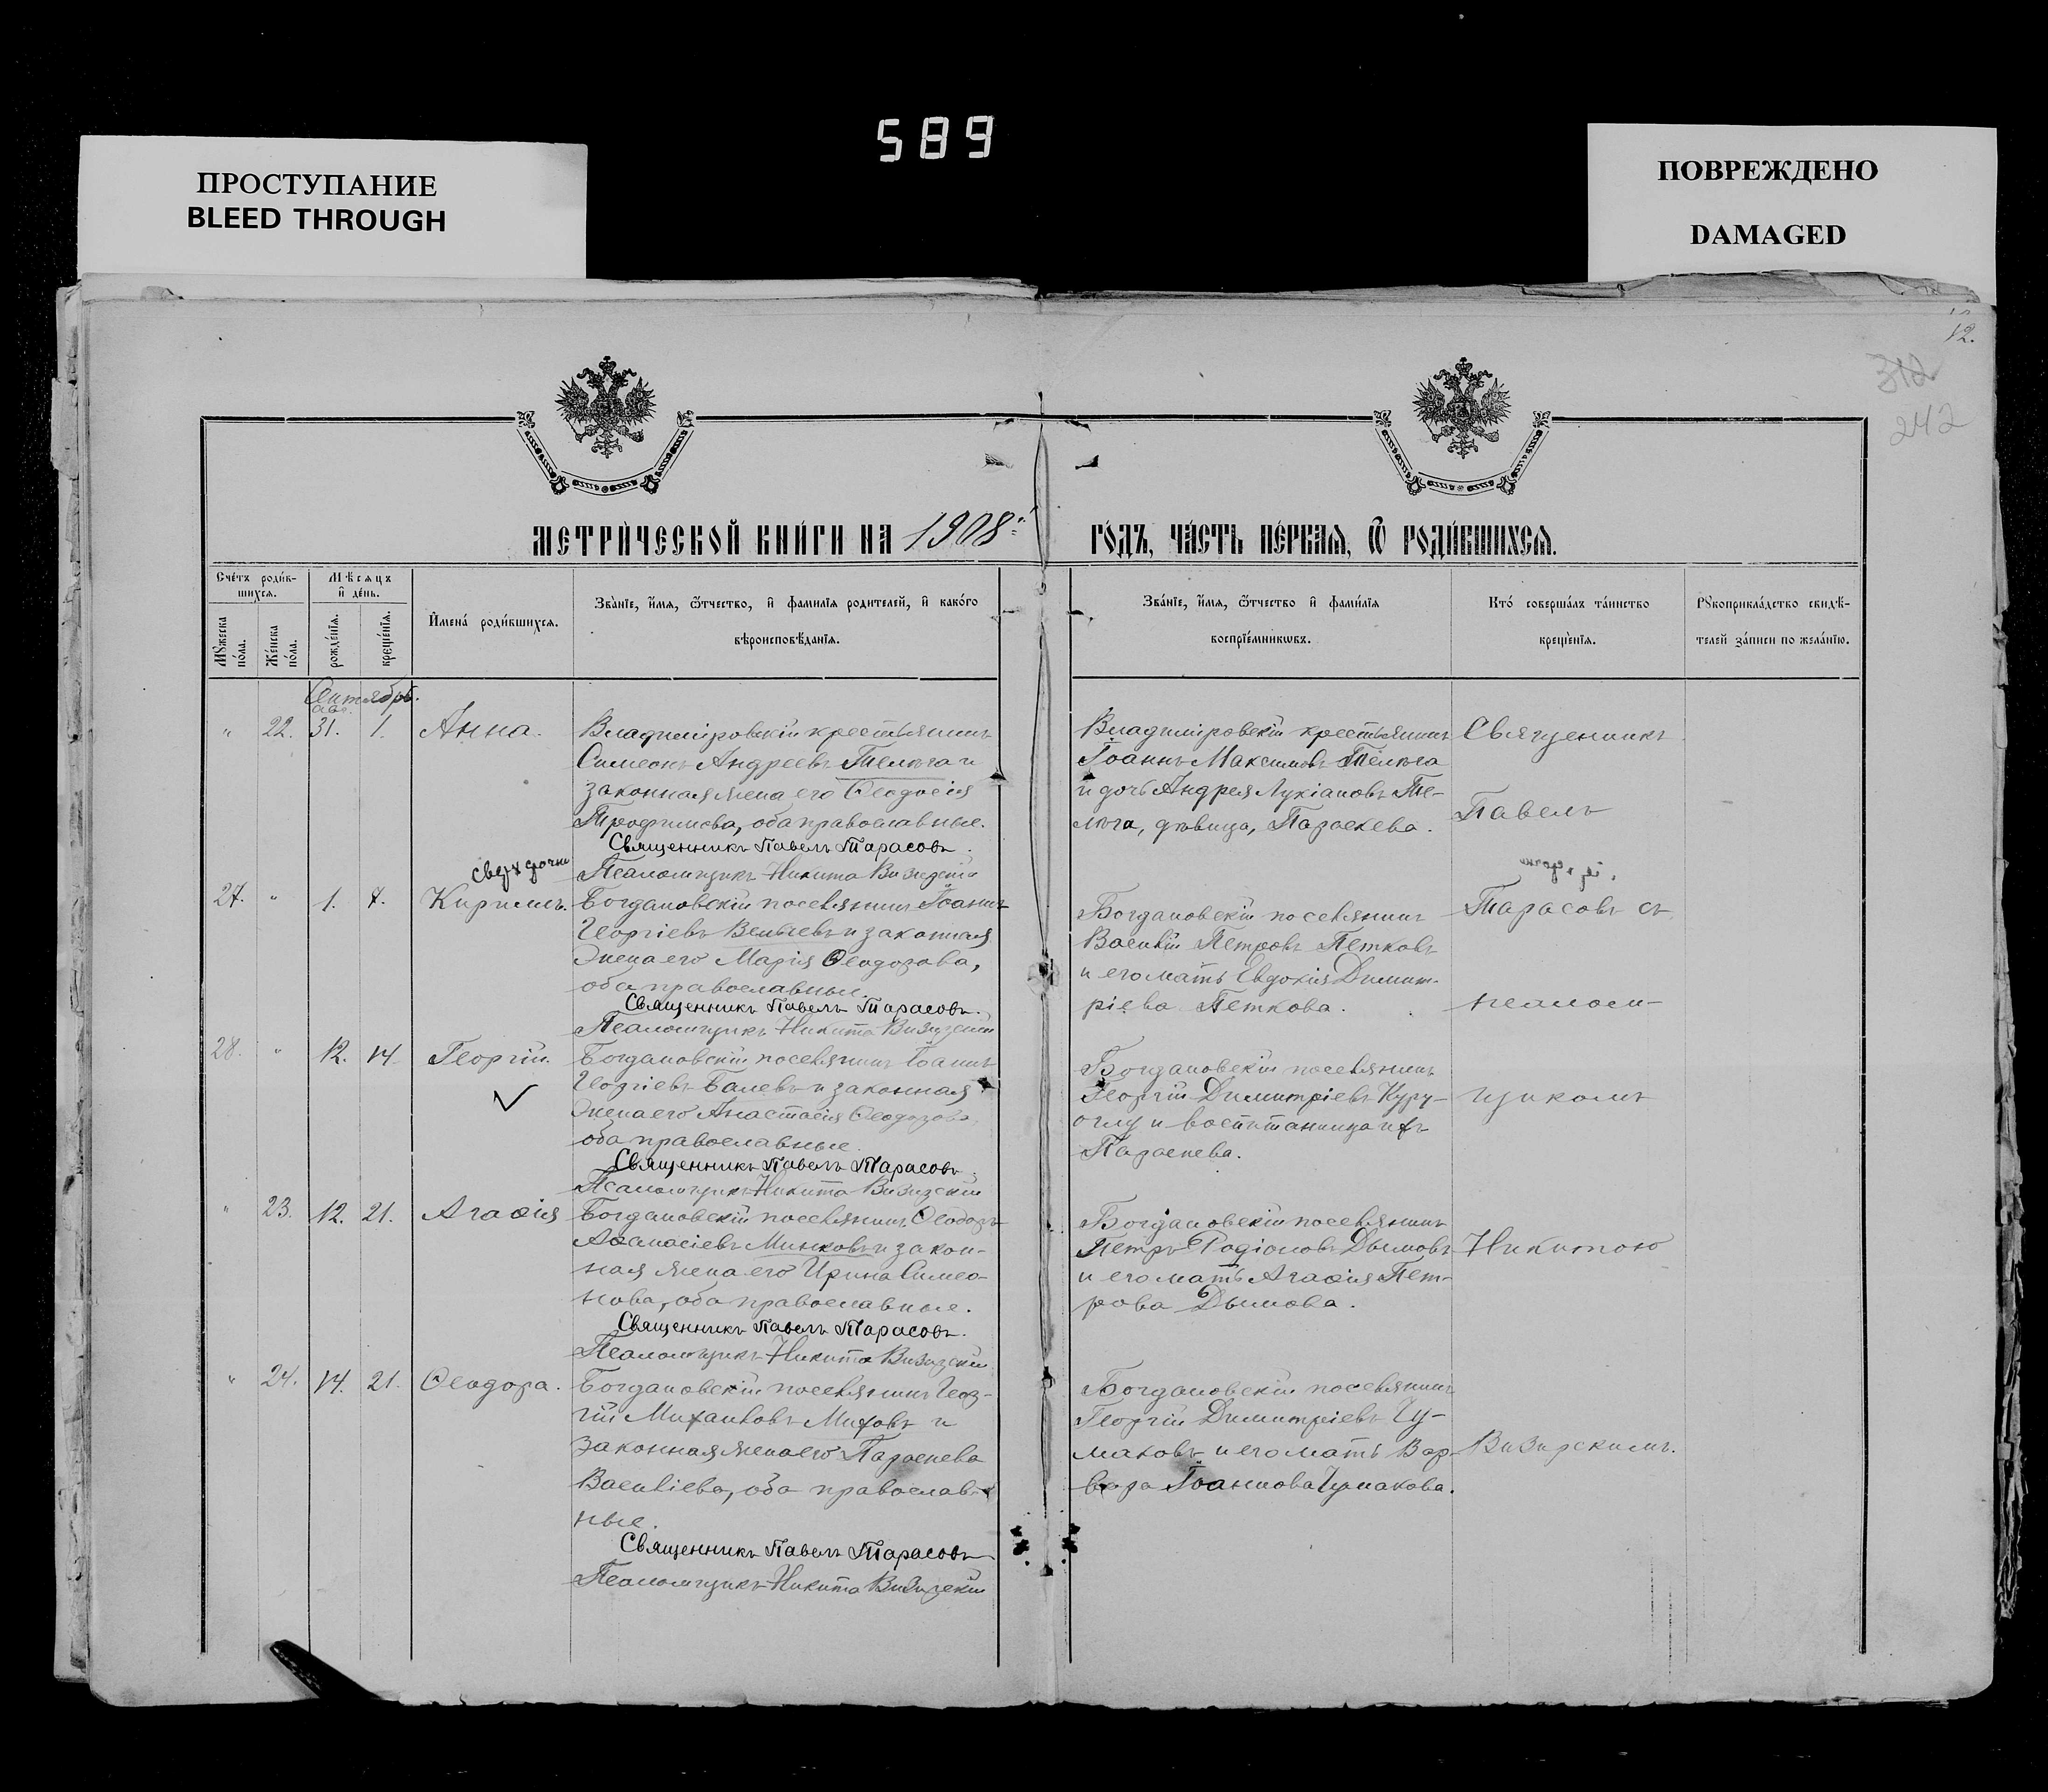 589
ПРОСТУПАНИЕ
BLEED THROUGH
ПОВРЕЖДЕНО
DAMAGED
12.
312
242
МЕТРИ́ЧЕСКОЙ КНИ́ГИ НА 1908
ГО́ДЪ, ЧА́СТЬ ПЕ́РВАѦ, Ѡ҆ РОДИ́ВШИХСѦ.
Сче́тъ роди́в-
шихсѧ.
Мꙋ́жеска по́ла.
Же́нска по́ла.
Мѣ́сѧцъ
и҆ де́нь.
рожде́нїѧ.
креще́нїѧ.
И҆мена́ роди́вшихсѧ.
Зва́нїе, и҆́мѧ, ѻ҆́тчество, и҆ фами́лїѧ роди́телей, и҆ како́гѡ
вѣроисповѣ́данїѧ.
Зва́нїе, и҆́мѧ, ѻ҆́тчество и҆ фами́лїѧ
воспрїе́мникѡвъ.
Кто́ соверша́лъ та́инство
креще́нїѧ.
Рꙋкоприкла́дство свидѣ́-
телей за́писи по жела́нїю.
Сентябрь.
авг.
" 22. 31. 1. Анна.
Владимiровскiй крестьянинъ
Симеонъ Андреевъ Телюга и
законная жена его Ѳеодосiя
Трофимова, оба православные.
Священникъ Павелъ Тарасовъ.
Псаломщикъ Никита Визирскiй
Владимiровскiй крестьянинъ
Iоаннъ Максимовъ Телюга
и дочь Андрея Лукiановъ Те-
люга, дѣвица, Параскева.
Священникъ
Павелъ
сверх строчки
27. " 1. 7. Кириллъ.
Богдановскiй поселянинъ Iоаннъ
Георгiевъ Вельчевъ и законная
жена его Марiя Ѳеодорова,
оба православные.
Священникъ Павелъ Тарасовъ.
Псаломщикъ Никита Визирскiй
Богдановскiй поселянинъ
Василiй Петровъ Петковъ
и его мать Евдокiя Димит-
рiева Петкова.
Тарасовъ съ
псалом-
28. " 12. 14. Георгiй.
Богдановскiй поселянинъ Iоаннъ
Георгiевъ Балевъ и законная
жена его Анастасiя Ѳеодорова
оба православные.
Священникъ Павелъ Тарасовъ.
Псаломщикъ Никита Визирскiй
Богдановскiй поселянинъ
Георгiй Димитрiевъ Куру-
оглу и воспитанница ихъ
Параскева.
щикомъ
" 23. 12. 21. Агаѳiя
Богдановскiй поселянинъ Ѳеодоръ
Аѳанасiевъ Минковъ и закон-
ная жена его Ирина Симео-
нова, оба православные.
Священникъ Павелъ Тарасовъ.
Псаломщикъ Никита Визирскiй
Богдановскiй поселянинъ
Петръ Родiоновъ Дымовъ
и его мать Агаѳiя Пет-
рова Дымова.
Никитою
" 24. 14. 21. Ѳеодора.
Богдановскiй поселянинъ Геор-
гiй Михаиловъ Миховъ и
законная жена его Параскева
Василiева, оба православ-
ные.
Священникъ Павелъ Тарасовъ
Псаломщикъ Никита Визирскiй
Богдановскiй поселянинъ
Георгiй Димитрiевъ Чу-
маковъ и его мать Вар-
вара Iоаннова Чумакова.
Визирскимъ.